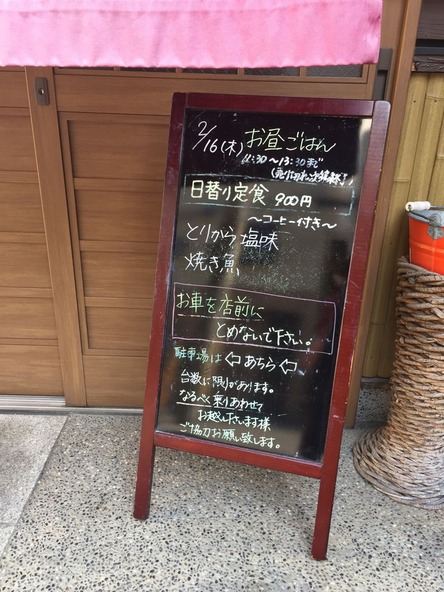 2/16(木) お昼ごはん
11:30～13:30まで
(売り切れ次第終了)
日替り定食 900円
～コーヒー付き～
とりから塩味
焼き魚
お車を店前に
とめないで下さい。
駐車場は⇦あちら⇦
台数に限りがあります。
なるべく乗りあわせて
お越し下さいます様
ご協力お願い致します。